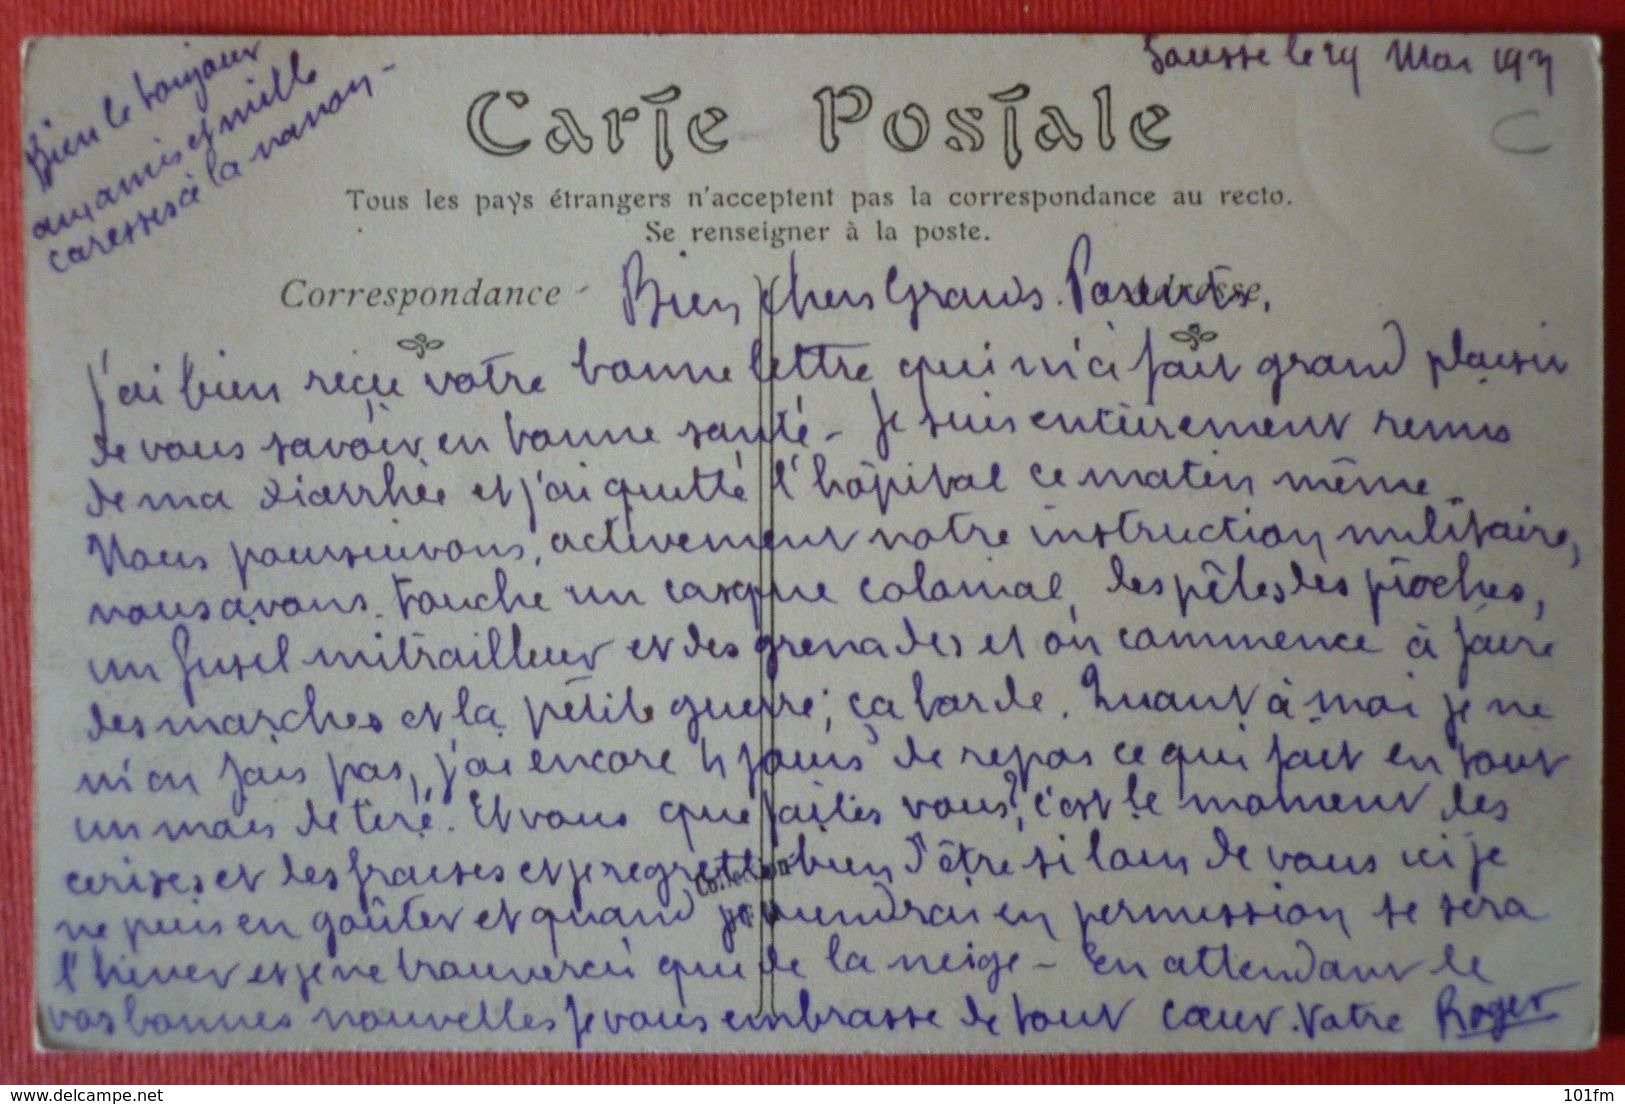 Sousse le 29 Mai 19
Bien le bonjour
aux amis et mille
caresses à la nanon -
Carte Postale
Tous les pays étrangers n'acceptent pas la correspondance au recto.
Se renseigner à la poste.
Correspondance
Adresse
Bien Chers Grands Parents,
J'ai bien reçu votre bonne lettre qui m'a fait grand plaisir
de vous savoir en bonne santé - Je suis entièrement remis
de ma diarrhée et j'ai quitté l'hôpital ce matin même.
Nous poursuivons activement notre instruction militaire,
nous avons touché un casque colonial, des pelles, des pioches,
un fusil mitrailleur et des grenades et on commence à faire
des marches et la petite guerre; ça barde. Quant à moi je ne
m'en fais pas, j'ai encore 4 jours de repos ce qui fait en tout
un mois de tiré. Et vous que faites vous?, c'est le moment des
cerises et des fraises et je regrette bien d'être si loin de vous ici je
ne puis en goûter et quand je viendrai en permission se sera
l'hiver et je ne trouverai que de la neige - En attendant de
vos bonnes nouvelles je vous embrasse de tout cœur. Votre Roger
Collection
delcampe.net
101fm